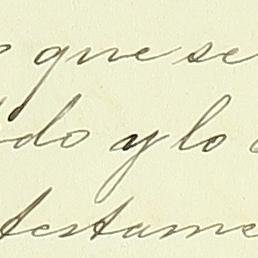 que se
do y lo
testame